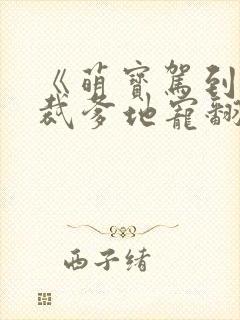 《萌寶駕到
裁爹地寵翻
西子緒